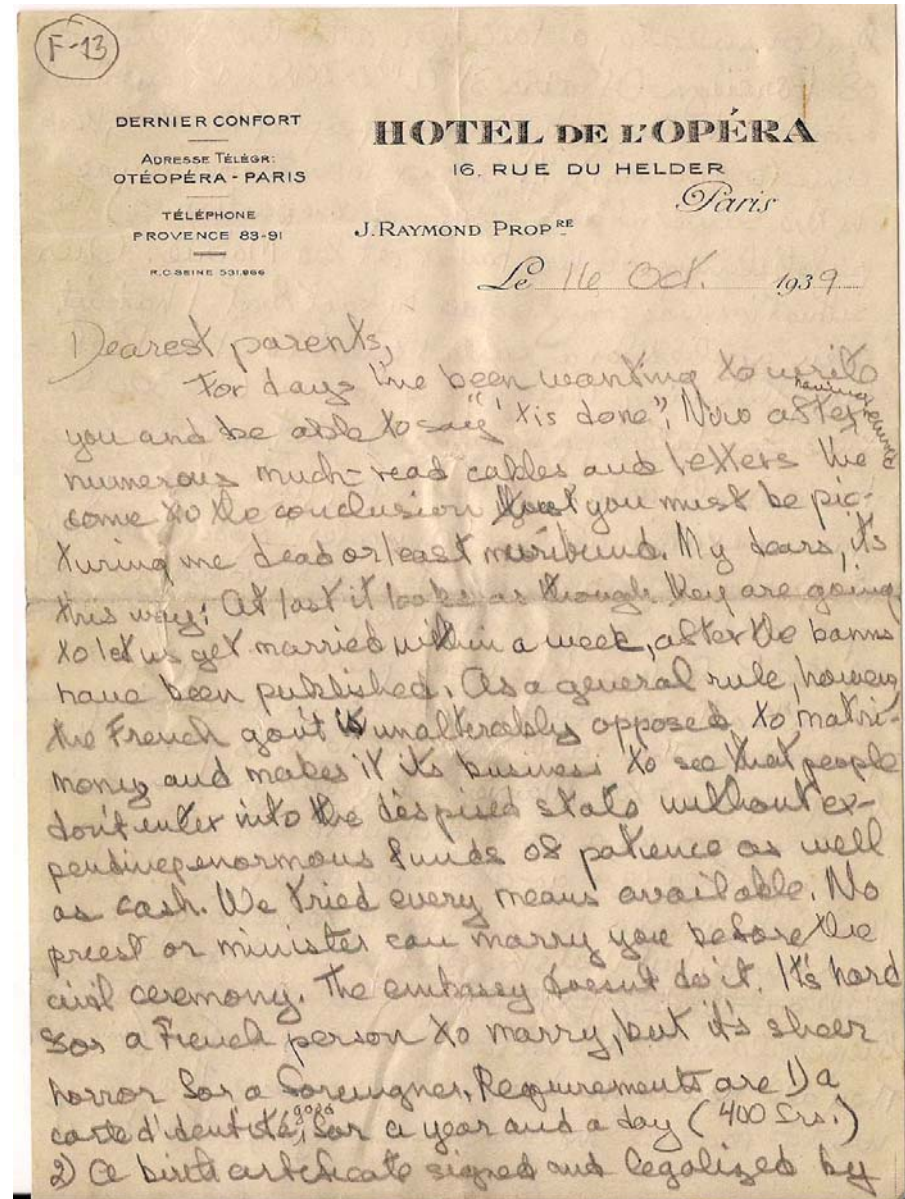 F-13
DERNIER CONFORT
ADRESSE TÉLÉGR:
OTÉOPÉRA - PARIS
TÉLÉPHONE
PROVENCE 83-91
R.C. SEINE 531.966
HOTEL DE L'OPÉRA
16, RUE DU HELDER
Paris
J. RAYMOND PROPRE
Le 16 Oct. 1939
Dearest parents,
For days I've been wanting to write
you and be able to say "'tis done". Now after having received
numerous much-read cables and letters I've
come to the conclusion that you must be pic-
turing me dead or least moribund. My dears, it's
this way: At last it looks as though they are going
to let us get married within a week, after the banns
have been published. As a general rule, however
the French gov't is unalterably opposed to matri-
mony and makes it its business to see that people
don't enter into the despised state without ex-
pending enormous funds of patience as well
as cash. We tried every means available. No
preest or minister can marry you before the
civil ceremony. The embassy doesn't do it. It's hard
for a French person to marry, but it's sheer
horror for a foreigner. Requirements are 1) a
carte d'identité, good for a year and a day (400 frs.)
2) A birth certificate signed and legalized by